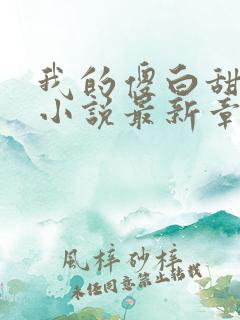 我的傻白甜
小说最新章
风梓砂梓
未经同意禁止转载